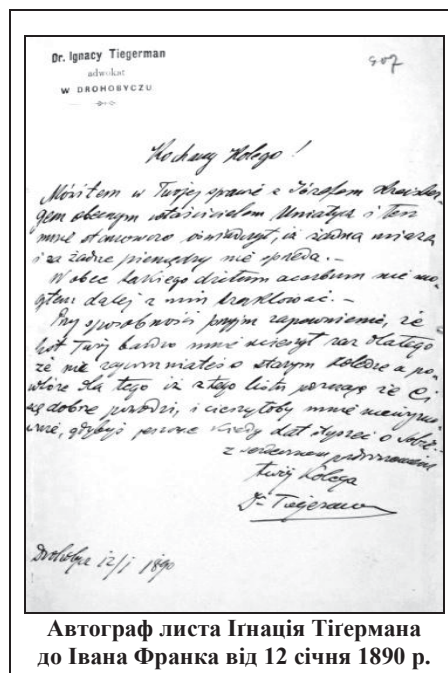 Dr. Ignacy Tiegerman
adwokat
W DROHOBYCZU
907
Kochany Kolego!
Mówiłem w Twojej sprawie z Józefem
obecnym właścicielem Uniatycz i Ten
mnie stanowczo oświadczył, iż żadną miarą
i za żadne pieniądze nie sprzeda. –
Wobec takiego dictum acerbum nie mo-
głem dalej z nim traktować. –
Przy sposobności przyjm zapewnienie, że
list Twój bardzo mnie ucieszył raz dlatego
że nie zapomniałeś o starym koledze a po-
wtóre dla tego iż z tego listu że Ci
się dobrze powodzi, i cieszyłoby mnie
gdybyś kiedy dał słyszeć o sobie. –
z serdecznem pozdrowieniem
twój kolega
Dr Tiegerman
Drohobycz 12/I 1890
Автограф листа Іґнація Тіґермана
до Івана Франка від 12 січня 1890 р.